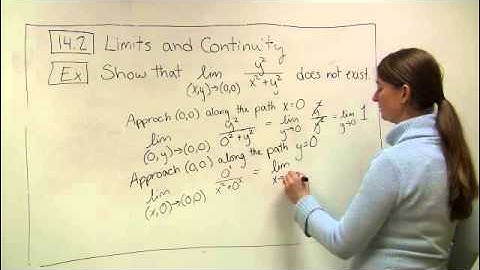 14.2 Limits and Continuity
Ex Show that lim (x,y)→(0,0) y²/(x²+y²) does not exist.
Approach (0,0) along the path x=0
lim (0,y)→(0,0) y²/(0²+y²) = lim y→0 y²/y² = lim y→0 1
Approach (0,0) along the path y=0
lim (x,0)→(0,0) 0²/(x²+0²) = lim x→